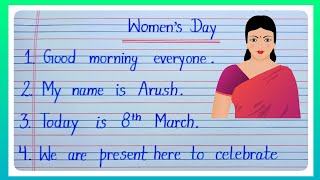 Women's Day
1. Good morning everyone.
2. My name is Arush.
3. Today is 8th March.
4. We are present here to celebrate